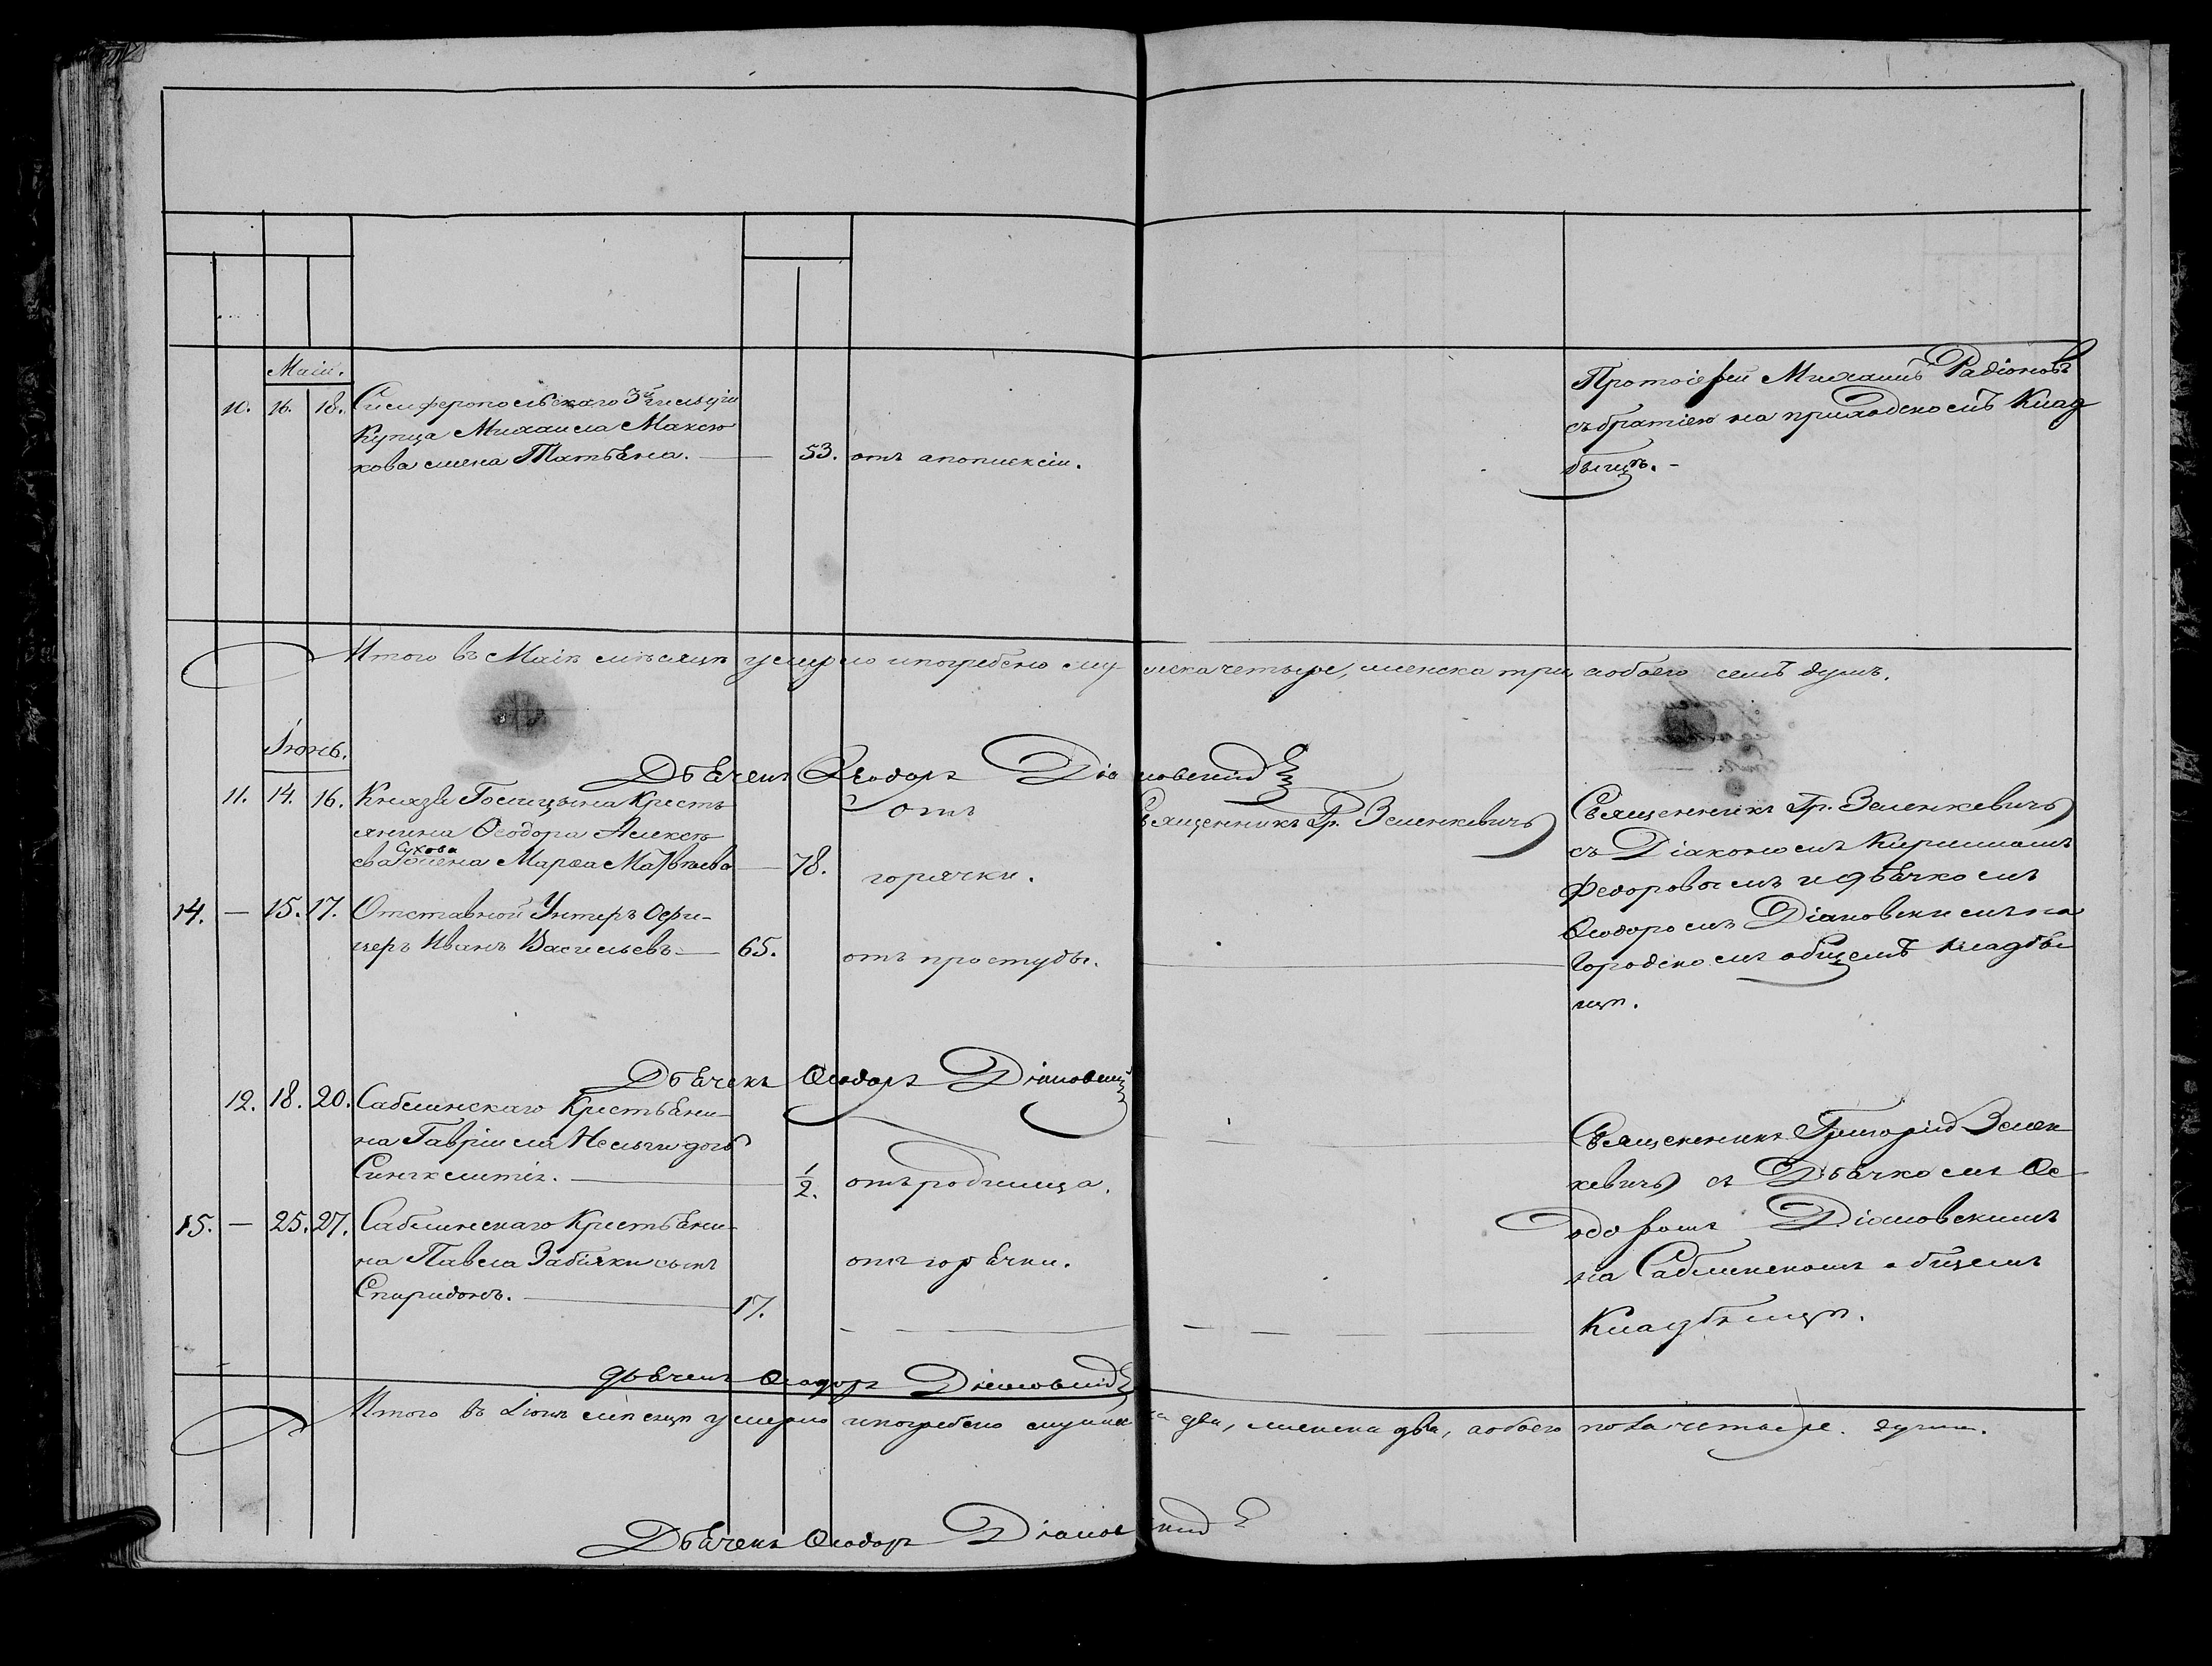 Маій.
10. 16. 18. Симферопольскаго 3й гильдіи
Купца Михаила Макею
кова жена Татьяна. — 53. отъ апоплексіи.
Протоіерей Михаилъ Радіоновъ
съ братіею на приходскомъ Клад
бищѣ. -
Итого въ Маіѣ мѣсяцѣ умерло и погребено мужеска четыре, женска три, а обоего семь душъ.
Іюнь.
Дьячекъ Ѳеодоръ Діяновскій
11. 14. 16. Князя Голицына Кресть
янина Ѳеодора Алексѣ
ева Сухова жена Марѳа Матвѣева — 78. отъ
горячки.
Священникъ Гр. Зеленкевичъ
14. — 15. 17. Отставной Унтеръ Офи-
церъ Иванъ Васильевъ — 65. отъ простуды.
Священникъ Гр. Зеленкевичъ
съ Діакономъ Кирилломъ
Федоровымъ и дьячкомъ
Ѳеодоромъ Діяновскимъ на
Городскомъ общемъ кладби
щѣ.
Дьячекъ Ѳеодоръ Діяновскій
12. 18. 20. Саблинскаго Крестьяни-
на Гавріила дочь
Синклитія. — 1/2. отъ родимца.
15. — 25. 27. Саблинскаго Крестьяни-
на Павла Забіяки сынъ
Спиридонъ. — 17. отъ горячки.
Священникъ Григорій Зелен
кевичъ съ Дьячкомъ Ѳе
одоромъ Діяновскимъ
на Саблинскомъ общемъ
Кладбищѣ.
дьячекъ Ѳеодоръ Діяновскій
Итого въ Іюнѣ мѣсяцѣ умерло и погребено мужеска два, женска два, а обоего пола четыре души.
Дьячекъ Ѳеодоръ Діяновскій